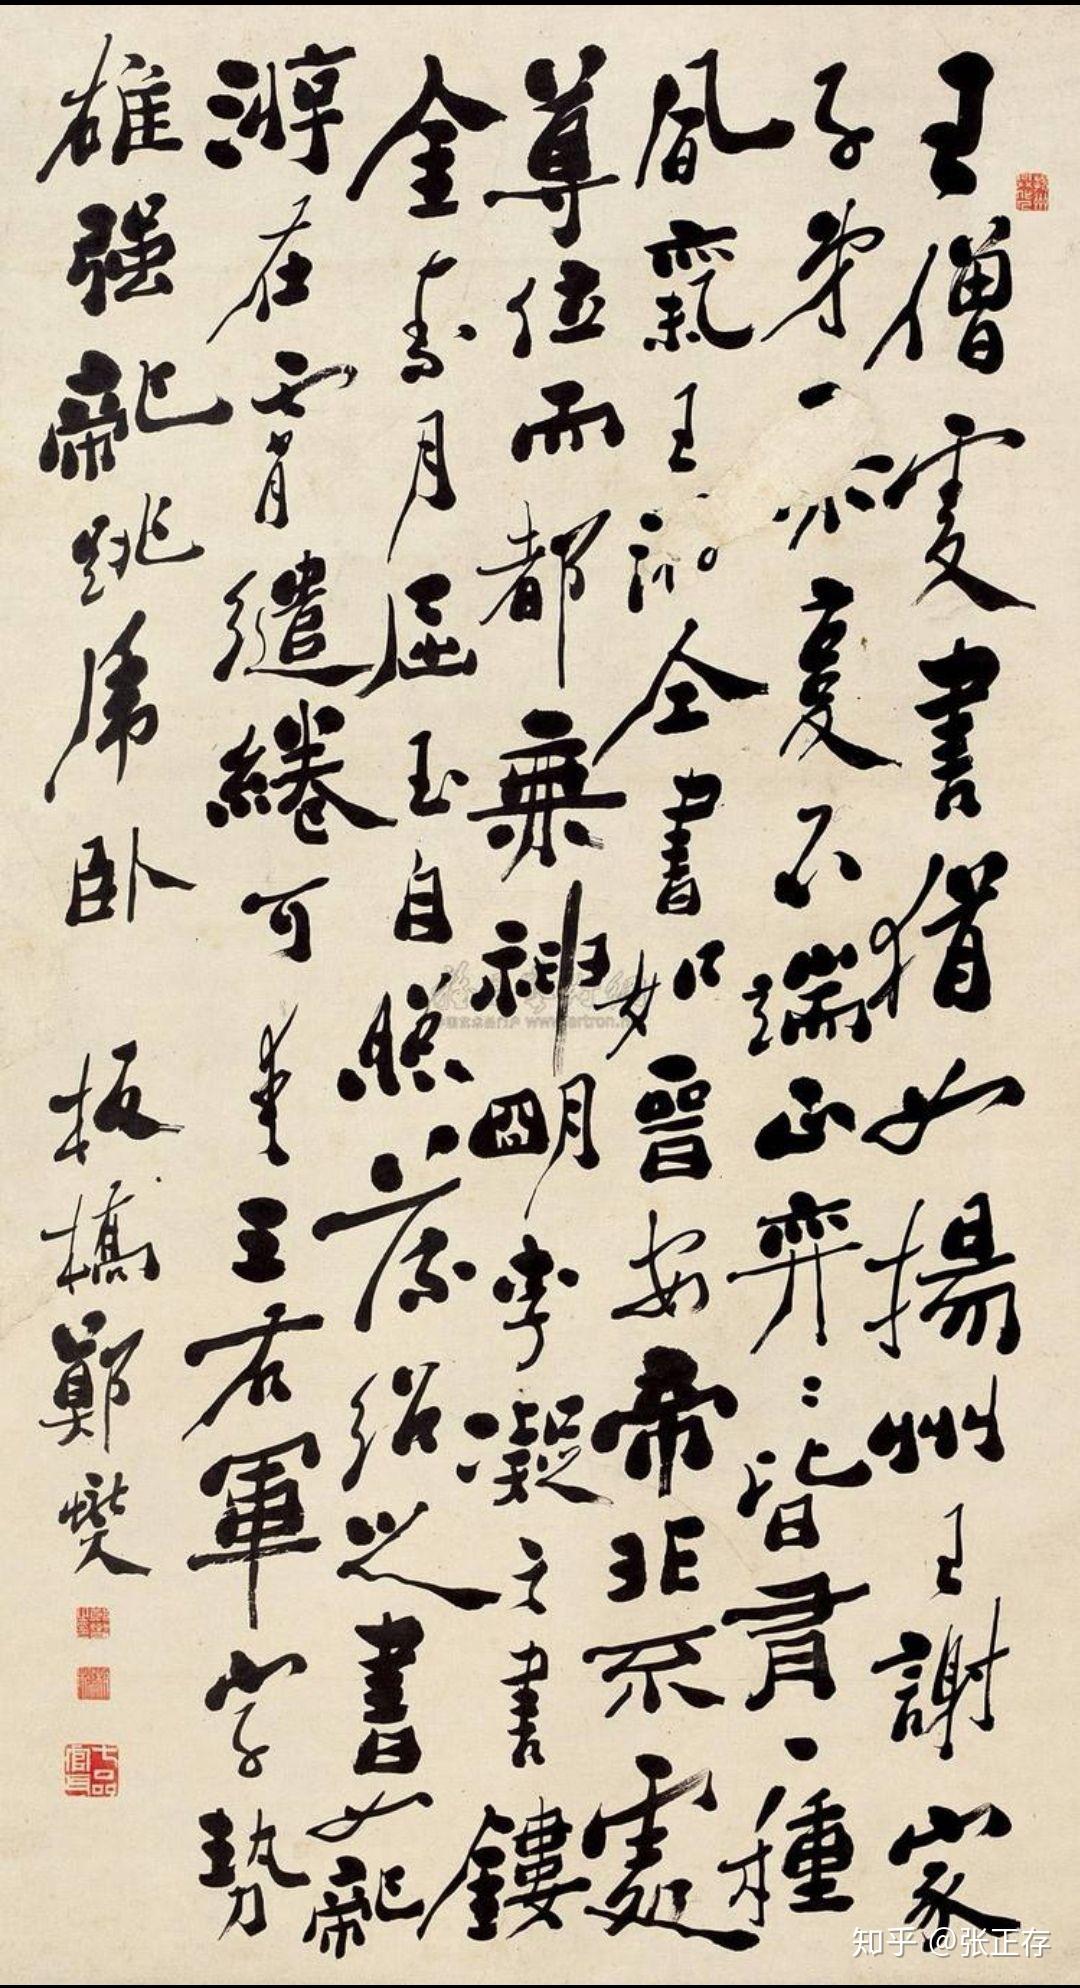 王僧虔書猶如揚州王謝家
子弟一亦复不端正奕〻皆有一種
風氣王仝書如晉安帝非不處
尊位而都無神明李凝文書鏤
金素月屈玉自照薄紹之書如龍
游在霄繾綣可愛王右軍字勢
雄强龍跳虎卧 板橋鄭燮
七品官耳
知乎 @张正存